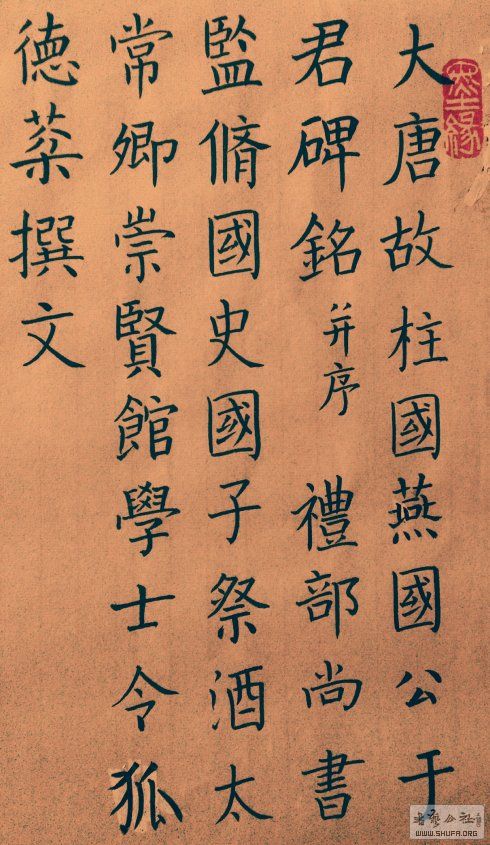 大唐故柱國燕國公于
君碑銘并序 禮部尚書
監脩國史國子祭酒太
常卿崇賢館學士令狐
德棻撰文
書藝公社
WWW.SHUFA.ORG